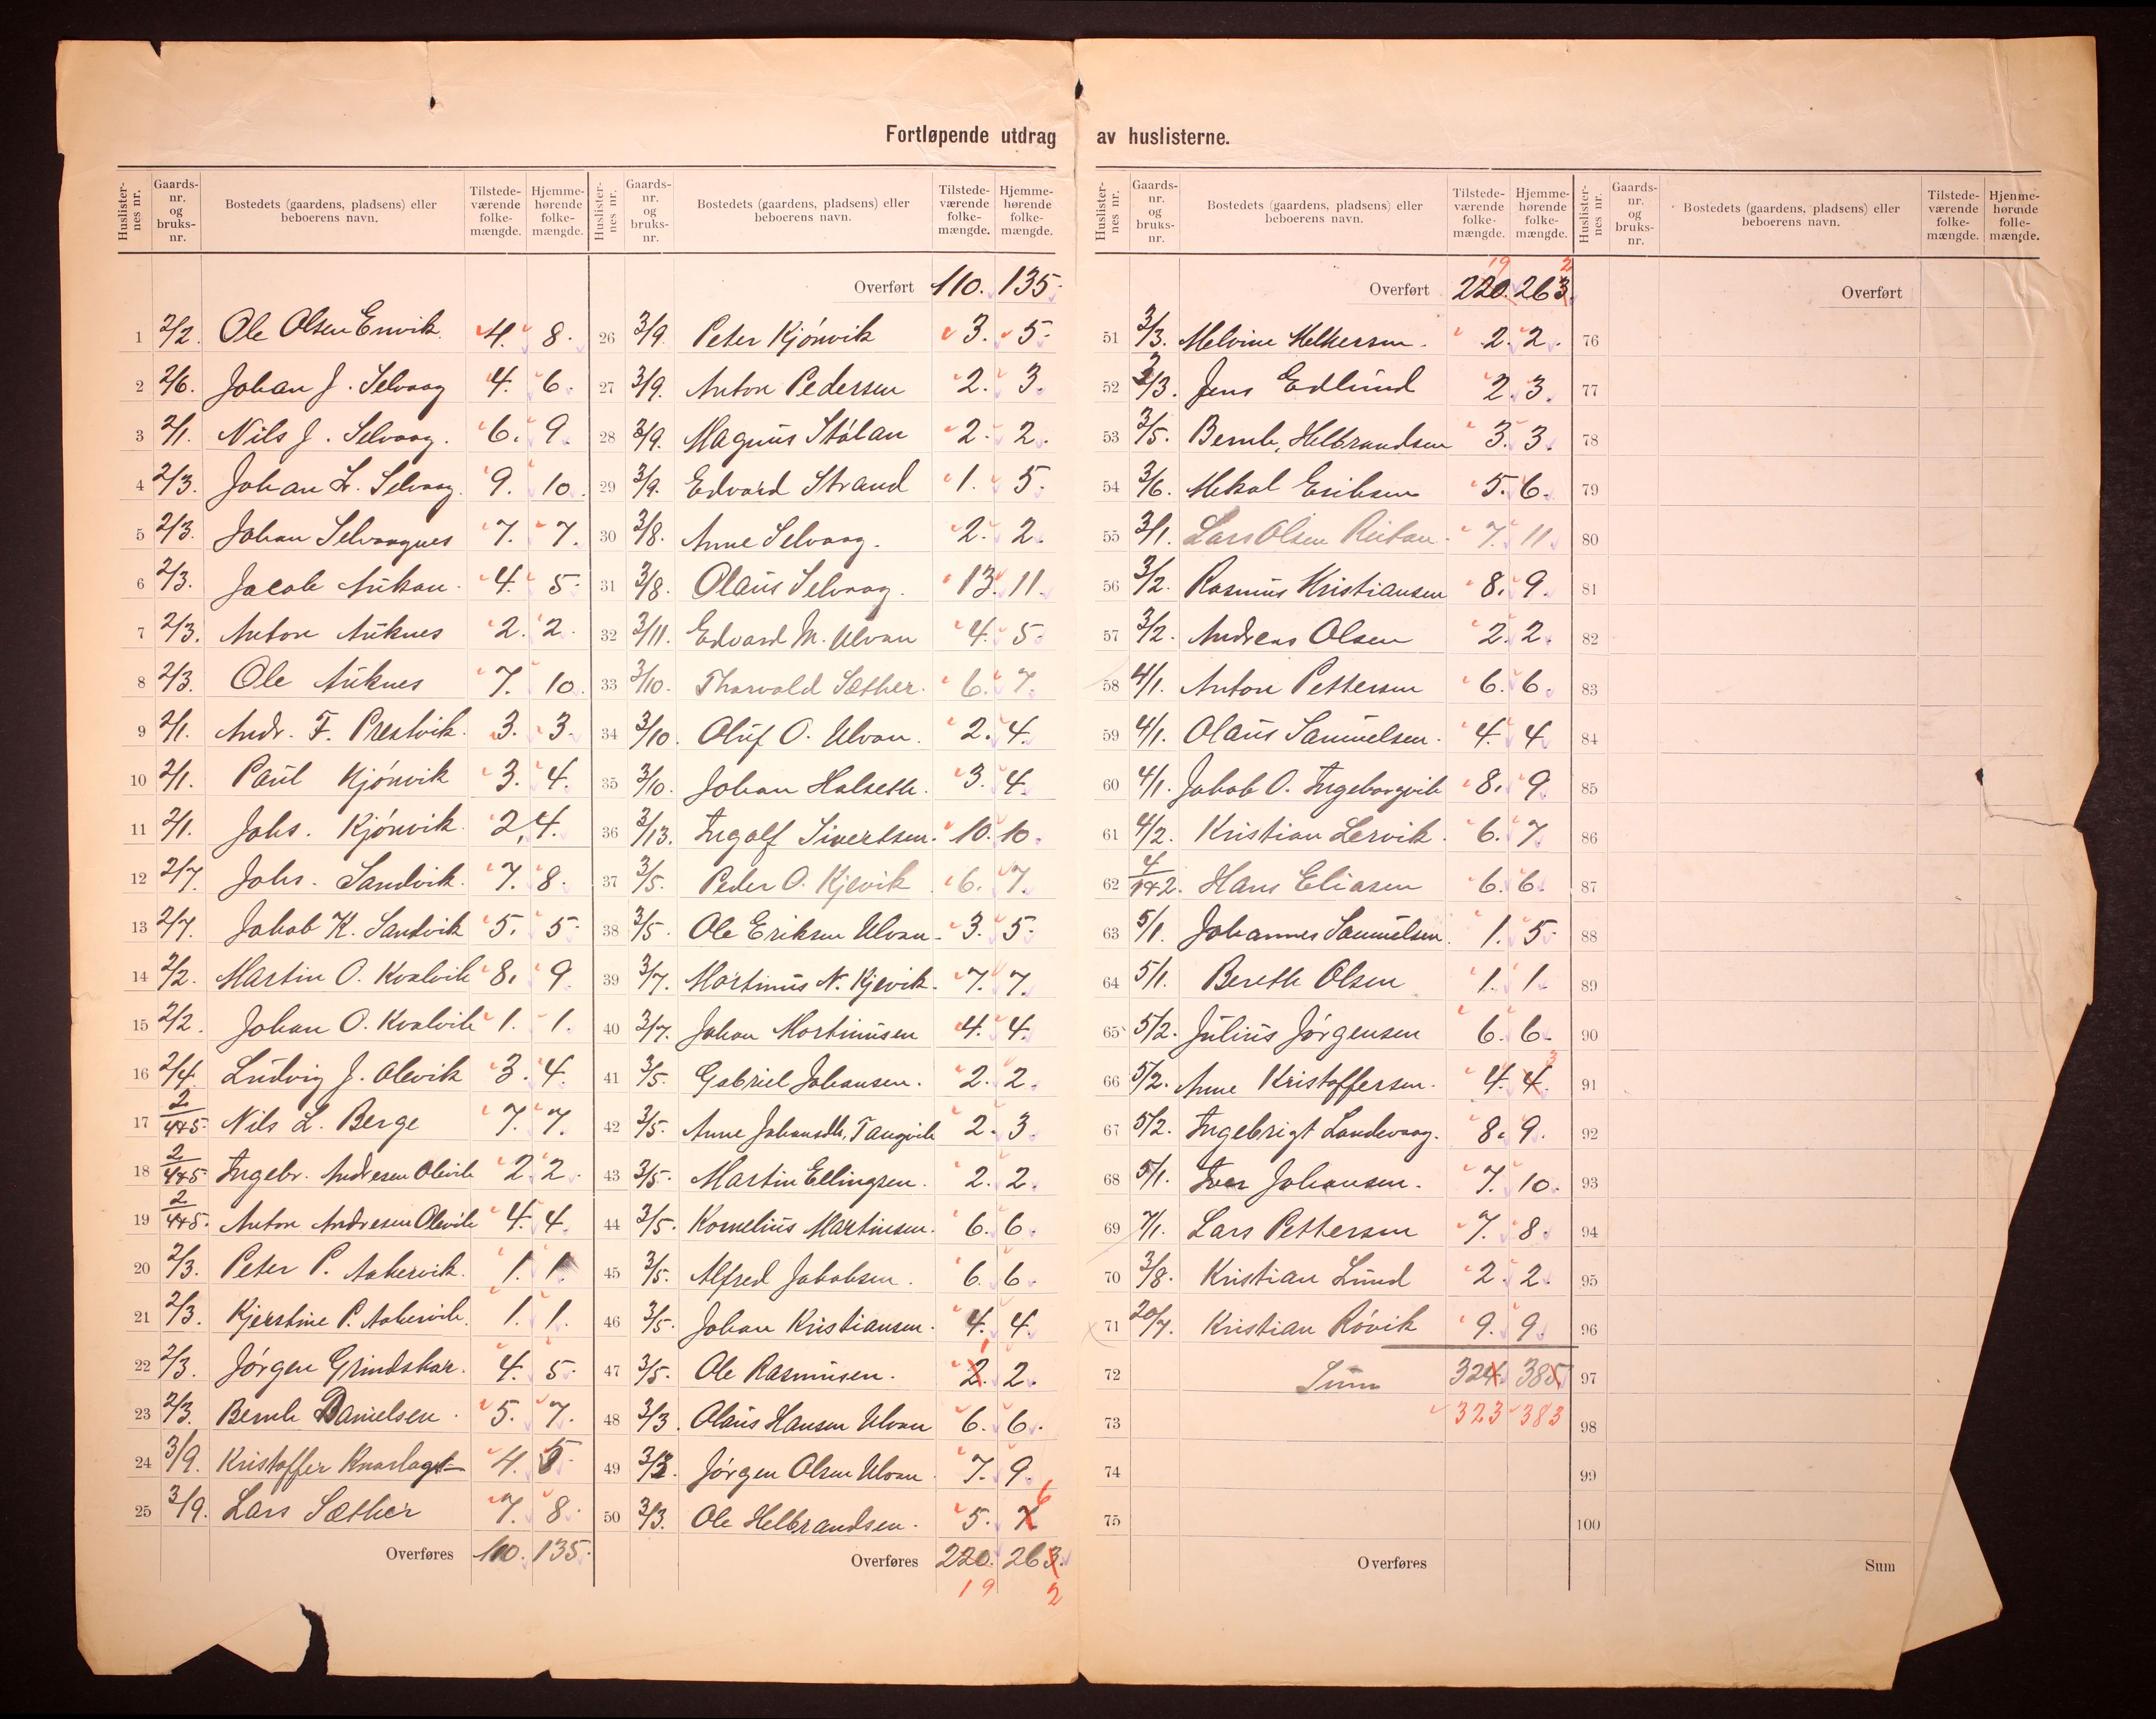 Fortløpende utdrag av huslisterne.
Huslister-nes nr. Gaards-nr. og bruks-nr. Bostedets (gaardens, pladsens) eller beboerens navn. Tilstede-værende folke-mængde. Hjemme-hørende folke-mængde.
1 2/2. Ole Olsen Envik. 4. 8.
2 2/6. Johan J. Selvaag 4. 6.
3 2/1. Nils J. Selvaag. 6. 9.
4 2/3. Johan L. Selvaag. 9. 10.
5 2/3. Johan Selvaagnes 7. 7.
6 2/3. Jacob Aukan. 4. 5.
7 2/3. Anton Auknes 2. 2.
8 2/3. Ole Auknes 7. 10.
9 2/1. Andr. F. Prestvik. 3. 3.
10 2/1. Paul Kjönvik 3. 4.
11 2/1. Johs. Kjönvik. 2. 4.
12 2/7. Johs. Sandvik. 7. 8.
13 2/7. Jakob K. Sandvik 5. 5.
14 2/2. Martin O. Kvalvik 8. 9.
15 2/2. Johan O. Kvalvik 1. 1.
16 2/4. Ludvig J. Olevik 3. 4.
17 2/4+5. Nils L. Berge 7. 7.
18 2/4+5 Ingebr. Andresen Olevik 2. 2.
19 2/4+5. Anton Andresen Olevik 4. 4.
20 2/3. Peter P. Aakervik. 1. 1.
21 2/3. Kjerstine P. Aakervik. 1. 1.
22 2/3. Jörgen Grindskar. 4. 5.
23 2/3. Bernh Danielsen. 5. 7.
24 3/9. Kristoffer Knarlagst 4. 5.
25 3/9. Lars Sæther 7. 8.
Overføres 110. 135.
Huslister-nes nr. Gaards-nr. og bruks-nr. Bostedets (gaardens, pladsens) eller beboerens navn. Tilstede-værende folke-mængde. Hjemme-hørende folke-mængde.
Overført 110. 135.
26 3/9. Peter Kjönvik 3. 5.
27 3/9. Anton Pedersen 2. 3.
28 3/9. Magnus Stölan 2. 2.
29 3/9. Edvard Strand 1. 5.
30 3/8. Anne Selvaag. 2. 2.
31 3/8. Olaus Selvaag. 13. 11.
32 3/11. Edvard M. Ulvan 4. 5.
33 3/10. Thorvald Sæther. 6. 7.
34 3/10. Oluf O. Ulvan. 2. 4.
35 3/10. Johan Halseth. 3. 4.
36 3/13. Ingolf Sivertsen. 10. 10.
37 3/5. Peder O. Kjevik 6. 7.
38 3/5. Ole Eriksen Ulvan. 3. 5.
39 3/7. Martinus N. Kjevik. 7. 7.
40 3/7. Johan Martinusen 4. 4.
41 3/5. Gabriel Johansen. 2. 2.
42 3/5. Anne Johansdtr. Tangvik 2. 3.
43 3/5. Martin Ellingsen. 2. 2.
44 3/5. Kornelius Martinsen. 6. 6.
45 3/5. Alfred Jakobsen. 6. 6.
46 3/5. Johan Kristiansen. 4. 4.
47 3/5. Ole Rasmusen. 2. 1 2.
48 3/3. Olaus Hansen Ulvan 6. 6.
49 3/3. Jörgen Olsen Ulvan. 7. 9.
50 3/3. Ole Helbrandsen. 5. 7 6
Overføres 220. 263.
19 2
Huslister-nes nr. Gaards-nr. og bruks-nr. Bostedets (gaardens, pladsens) eller beboerens navn. Tilstede-værende folke-mængde. Hjemme-hørende folke-mængde.
19 2
Overført 220. 263.
51 3/3. Melvine Melkersen. 2. 2.
52 3/3. Jens Edlund 2. 3.
53 3/5. Bernh. Helbrandsen 3. 3.
54 3/6. Mekal Eriksen 5. 6.
55 3/1. Lars Olsen Reitan. 7. 11.
56 3/2. Rasmus Kristiansen 8. 9.
57 3/2. Andreas Olsen 2. 2.
58 4/1. Anton Pettersen 6. 6.
59 4/1. Olaus Samuelsen. 4. 4.
60 4/1. Jakob O. Ingeborgvik 8. 9.
61 4/2. Kristian Lervik. 6. 7.
62 4/1+2. Hans Eliasen 6. 6.
63 5/1. Johannes Samuelsen. 1. 5.
64 5/1. Bereth Olsen 1. 1.
65 5/2. Julius Jörgensen 6. 6.
66 5/2. Anne Kristoffersen. 4. 4. 3
67 5/2. Ingebrigt Landevaag. 8. 9.
68 5/1. Iver Johansen. 7. 10.
69 7/1. Lars Pettersen 7. 8.
70 3/8. Kristian Lund 2. 2.
71 20/7. Kristian Rövik 9. 9.
72 Sum 324. 385.
73 323 383
74
75
Overføres
Huslister-nes nr. Gaards-nr. og bruks-nr. Bostedets (gaardens, pladsens) eller beboerens navn. Tilstede-værende folke-mængde. Hjemme-hørende folke-mængde.
Overført
76
77
78
79
80
81
82
83
84
85
86
87
88
89
90
91
92
93
94
95
96
97
98
99
100
Sum